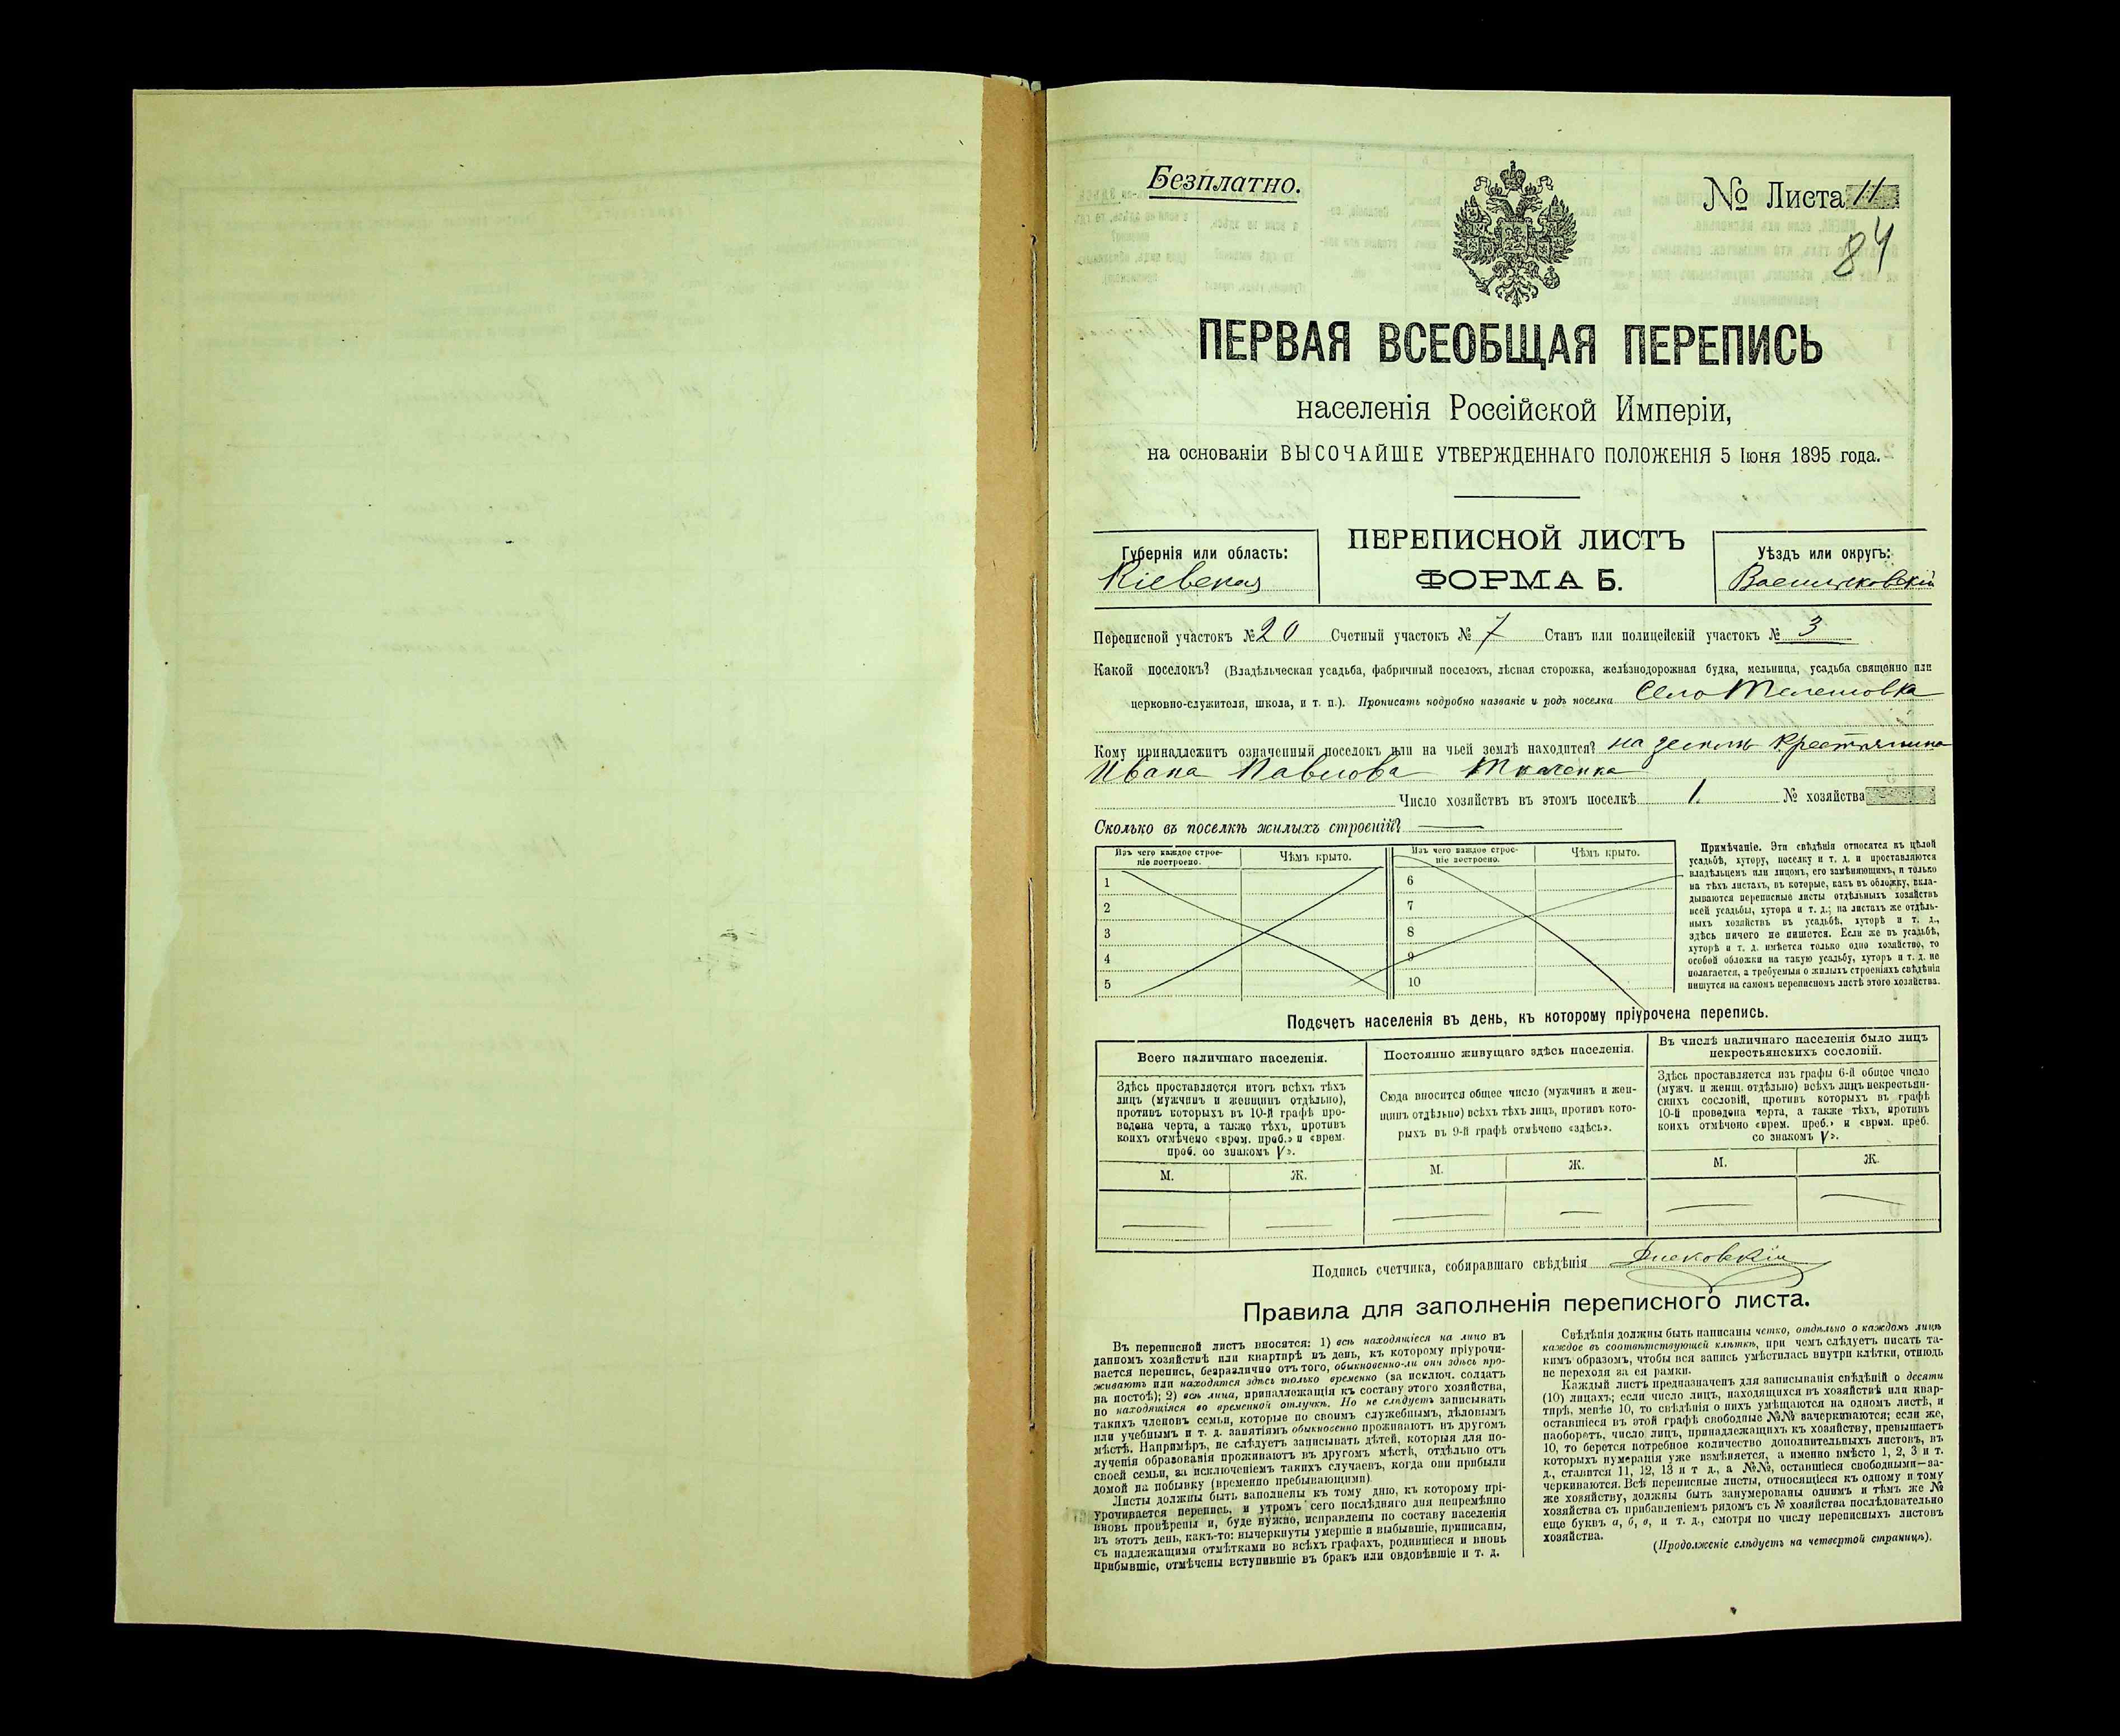 Безплатно.
№ Листа 11
84
ПЕРВАЯ ВСЕОБЩАЯ ПЕРЕПИСЬ
населенія Россійской Имперіи,
на основаніи ВЫСОЧАЙШЕ УТВЕРЖДЕННАГО ПОЛОЖЕНІЯ 5 Іюня 1895 года.
Губернія или область:
Кіевская
ПЕРЕПИСНОЙ ЛИСТЪ
ФОРМА Б.
Уѣздъ или округъ:
Васильковскій
Переписной участокъ № 20 Счетный участокъ № 7 Станъ или полицейскій участокъ № 3
Какой поселокъ? (Владѣльческая усадьба, фабричный поселокъ, лѣсная сторожка, желѣзнодорожная будка, мельница, усадьба священно или
церковно-служителя, школа, и т. п.). Прописать подробно названіе и родъ поселка Село Телешовка
Кому принадлежитъ означенный поселокъ или на чьей землѣ находится? на земли крестянина
Ивана Павлова Ткаченка
Число хозяйствъ въ этомъ поселкѣ 1. № хозяйства
Сколько въ поселкѣ жилыхъ строеній?
Изъ чего каждое строе-
ніе построено.
Чѣмъ крыто.
Изъ чего каждое строе-
ніе построено.
Чѣмъ крыто.
1
2
3
4
5
6
7
8
9
10
Примѣчаніе. Эти свѣдѣнія относятся къ цѣлой
усадьбѣ, хутору, поселку и т. д. и проставляются
владѣльцемъ или лицомъ, его замѣняющимъ, и только
на тѣхъ листахъ, въ которые, какъ въ обложку, вкла-
дываются переписные листы отдѣльныхъ хозяйствъ
всей усадьбы, хутора и т. д.; на листахъ же отдѣль-
ныхъ хозяйствъ въ усадьбѣ, хуторѣ и т. д.,
здѣсь ничего не пишется. Если же въ усадьбѣ,
хуторѣ и т. д. имѣется только одно хозяйство, то
особой обложки на такую усадьбу, хуторъ и т. д. не
полагается, а требуемыя о жилыхъ строеніяхъ свѣдѣнія
пишутся на самомъ переписномъ листѣ этого хозяйства.
Подсчетъ населенія въ день, къ которому пріурочена перепись.
Всего наличнаго населенія.
Здѣсь проставляется итогъ всѣхъ тѣхъ
лицъ (мужчинъ и женщинъ отдѣльно),
противъ которыхъ въ 10-й графѣ про-
ведена черта, а также тѣхъ, противъ
коихъ отмѣчено «врем. преб.» и «врем.
преб. со знакомъ V».
М. Ж.
Постоянно живущаго здѣсь населенія.
Сюда вносится общее число (мужчинъ и жен-
щинъ отдѣльно) всѣхъ тѣхъ лицъ, противъ кото-
рыхъ въ 9-й графѣ отмѣчено «здѣсь».
М. Ж.
Въ числѣ наличнаго населенія было лицъ
некрестьянскихъ сословій.
Здѣсь проставляется изъ графы 6-й общее число
(мужч. и женщ. отдѣльно) всѣхъ лицъ некрестьян-
скихъ сословій, противъ которыхъ въ графѣ
10-й проведена черта, а также тѣхъ, противъ
коихъ отмѣчено «врем. преб.» и «врем. преб.
со знакомъ V».
М. Ж.
Подпись счетчика, собиравшаго свѣдѣнія
Правила для заполненія переписного листа.
Въ переписной листъ вносятся: 1) всѣ находящіеся на лицо въ
данномъ хозяйствѣ или квартирѣ въ день, къ которому пріурочи-
вается перепись, безразлично отъ того, обыкновенно-ли они здѣсь про-
живаютъ или находятся здѣсь только временно (за исключ. солдатъ
на постоѣ); 2) всѣ лица, принадлежащія къ составу этого хозяйства,
но находящіяся во временной отлучкѣ. Но не слѣдуетъ записывать
такихъ членовъ семьи, которые по своимъ служебнымъ, дѣловымъ
или учебнымъ и т. д. занятіямъ обыкновенно проживаютъ въ другомъ
мѣстѣ. Напримѣръ, не слѣдуетъ записывать дѣтей, которыя для по-
лученія образованія проживаютъ въ другомъ мѣстѣ, отдѣльно отъ
своей семьи, за исключеніемъ такихъ случаевъ, когда они прибыли
домой на побывку (временно пребывающими).
Листы должны быть заполнены къ тому дню, къ которому прі-
урочивается перепись, и утромъ сего послѣдняго дня непремѣнно
вновь провѣрены и, буде нужно, исправлены по составу населенія
въ этотъ день, какъ-то: вычеркнуты умершіе и выбывшіе, приписаны,
съ надлежащими отмѣтками во всѣхъ графахъ, родившіеся и вновь
прибывшіе, отмѣчены вступившіе въ бракъ или овдовѣвшіе и т. д.
Свѣдѣнія должны быть написаны четко, отдѣльно о каждомъ лицѣ
каждое въ соотвѣтствующей клѣткѣ, при чемъ слѣдуетъ писать та-
кимъ образомъ, чтобы вся запись умѣстилась внутри клѣтки, отнюдь
не переходя за ея рамки.
Каждый листъ предназначенъ для записыванія свѣдѣній о десяти
(10) лицахъ; если число лицъ, находящихся въ хозяйствѣ или квар-
тирѣ, менѣе 10, то свѣдѣнія о нихъ умѣщаются на одномъ листѣ, и
оставшіеся въ этой графѣ свободные №№ зачеркиваются; если же,
наоборотъ, число лицъ, принадлежащихъ къ хозяйству, превышаетъ
10, то берется потребное количество дополнительныхъ листовъ, въ
которыхъ нумерація уже измѣняется, а именно вмѣсто 1, 2, 3 и т.
д., ставится 11, 12, 13 и т д., а №№, оставшіеся свободными—за-
черкиваются. Всѣ переписные листы, относящіеся къ одному и тому
же хозяйству, должны быть занумерованы однимъ и тѣмъ же №
хозяйства съ прибавленіемъ рядомъ съ № хозяйства послѣдовательно
еще буквъ а, б, в, и т. д., смотря по числу переписныхъ листовъ
хозяйства.
(Продолженіе слѣдуетъ на четвертой страницѣ).